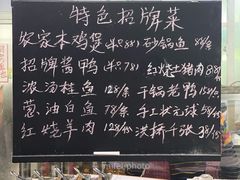 特色招牌菜
农家本鸡煲(半只88) 砂锅鱼 58/条
招牌酱鸭(半只78) 红烧土猪肉 88/份
浓汤桂鱼 128/条 干锅老鸭 158/份
葱油白鱼 78/条 手工状元球 58/份
红烧羊肉 128/份 洪桥千张 38/份